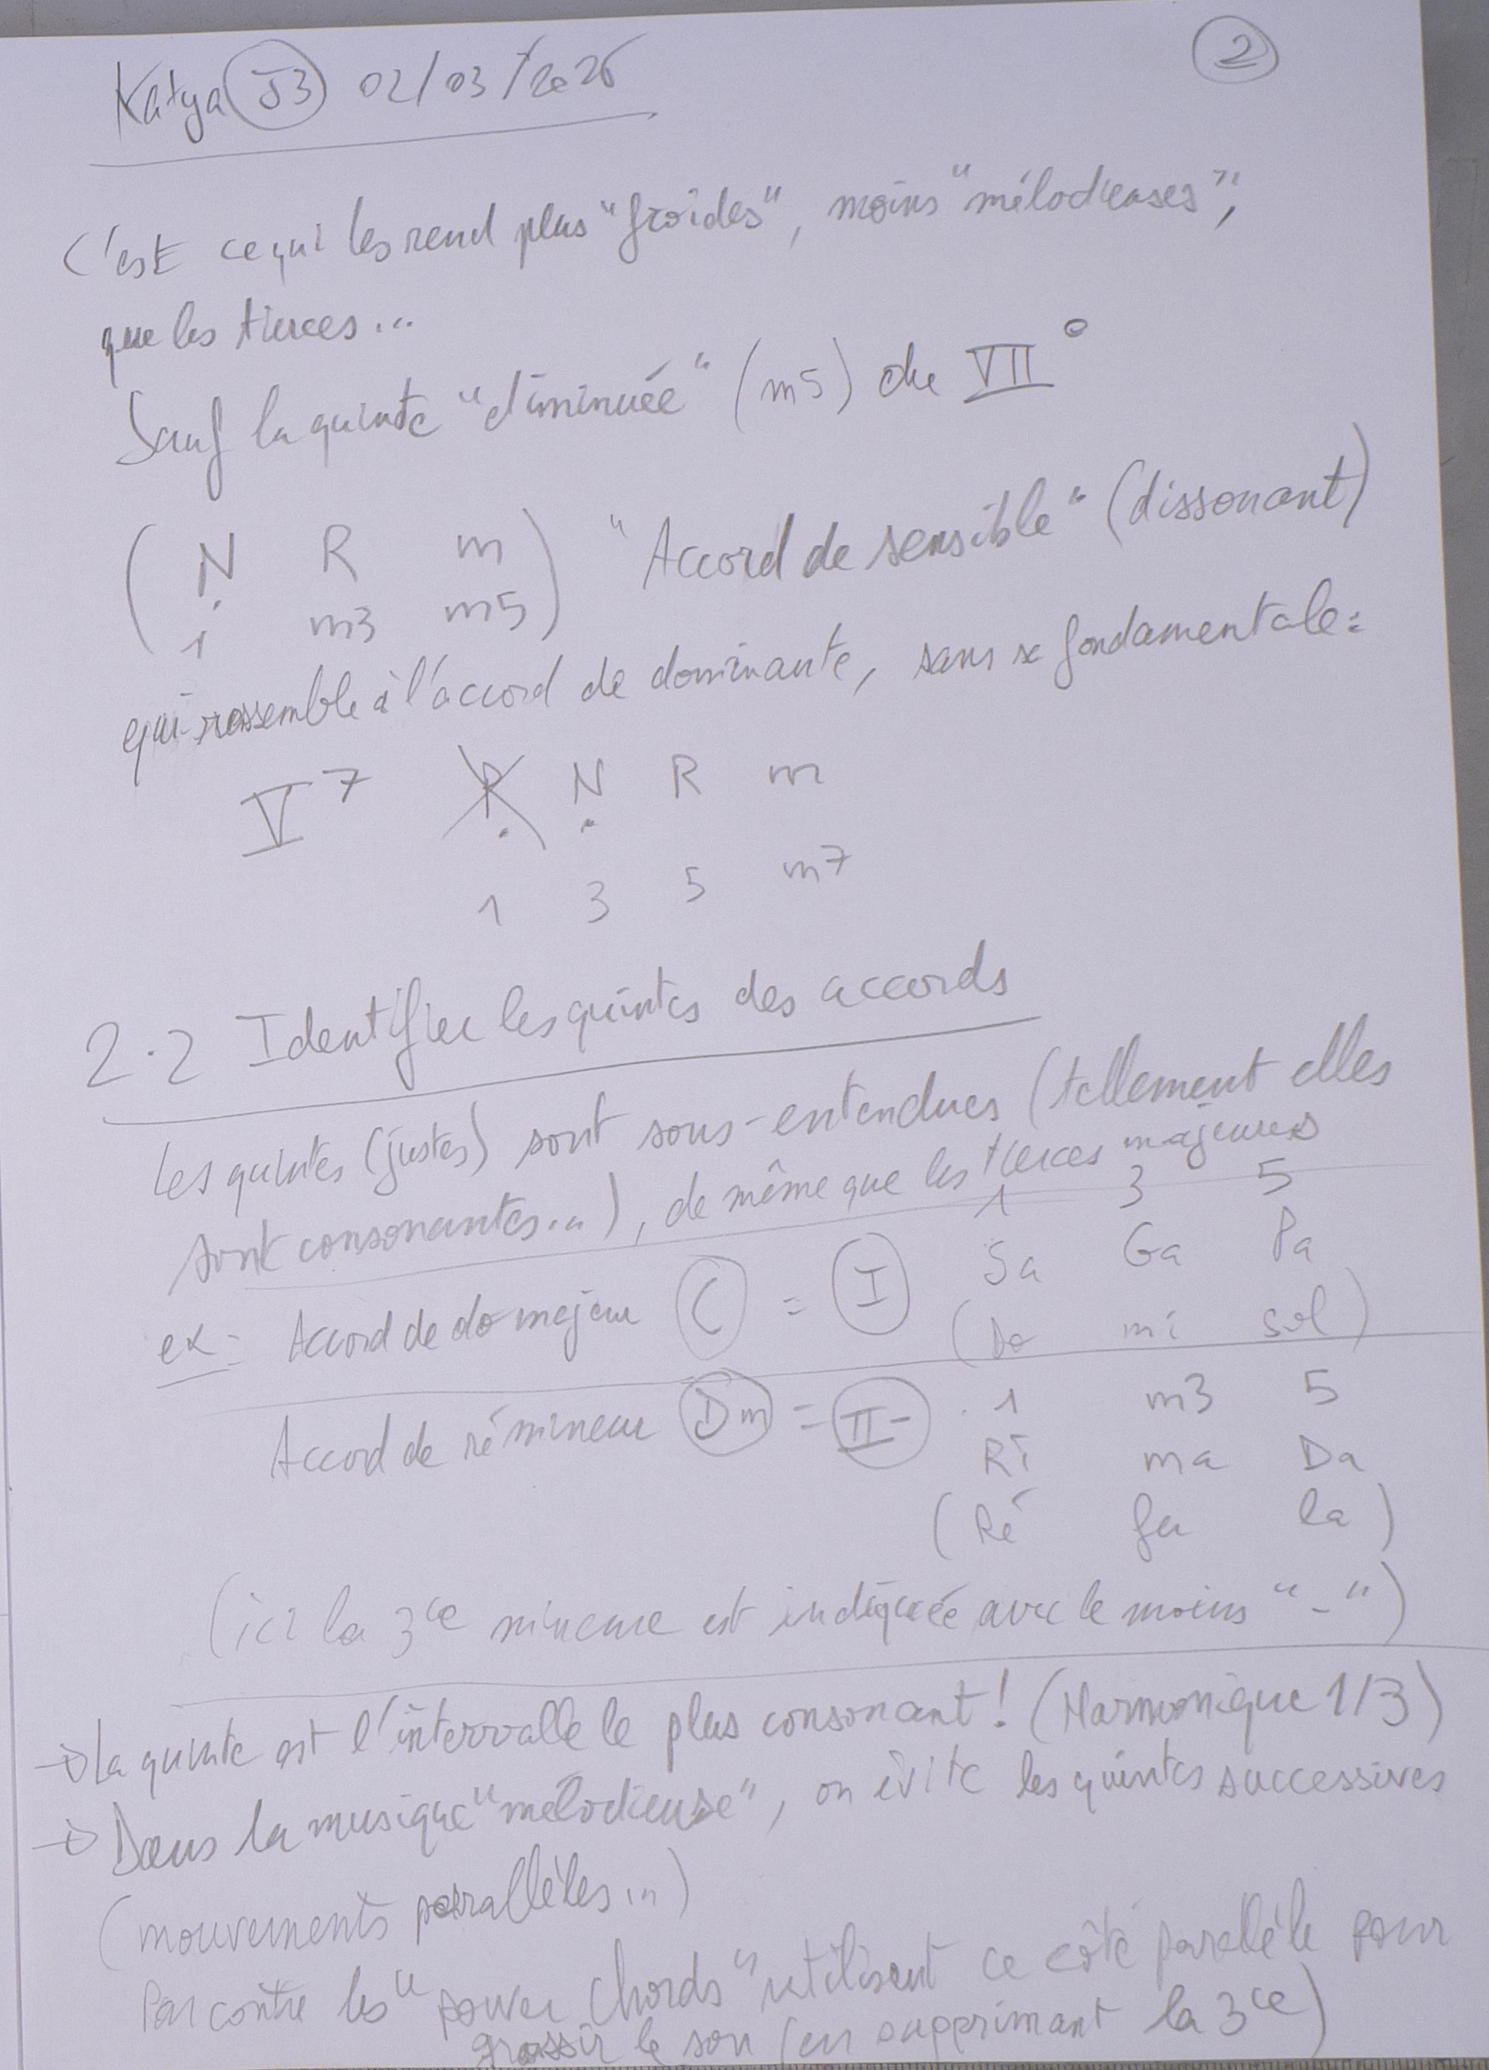 Katya J3 02/03/2026
2
C'est ce qui les rend plus "froides", moins "mélodieuses",
que les tierces...
Sauf la quinte "diminuée" (m5) du VII°
( N R m ) "Accord de sensible" (dissonant)
1 m3 m5
qui ressemble à l'accord de dominante, sans se fondamentale:
V7 P N R m
1 3 5 m7
2.2 Identifier les quintes des accords
Les quintes (justes) sont sous-entendues (tellement elles
sont consonantes...), de même que les tierces majeures
1 3 5
ex: Accord de do majeur C = I Sa Ga Pa
(Do mi sol)
Accord de ré mineur Dm = II- 1 m3 5
Ri ma Da
(Ré fa la)
(ici la 3ce mineure est indiquée avec le moins "-")
→ La quinte est l'intervalle le plus consonant! (Harmonique 1/3)
→ Dans la musique "mélodieuse", on évite les quintes successives
(mouvements parallèles...)
Par contre les "power chords" utilisent ce côté parallèle pour
grossir le son (en supprimant la 3ce)